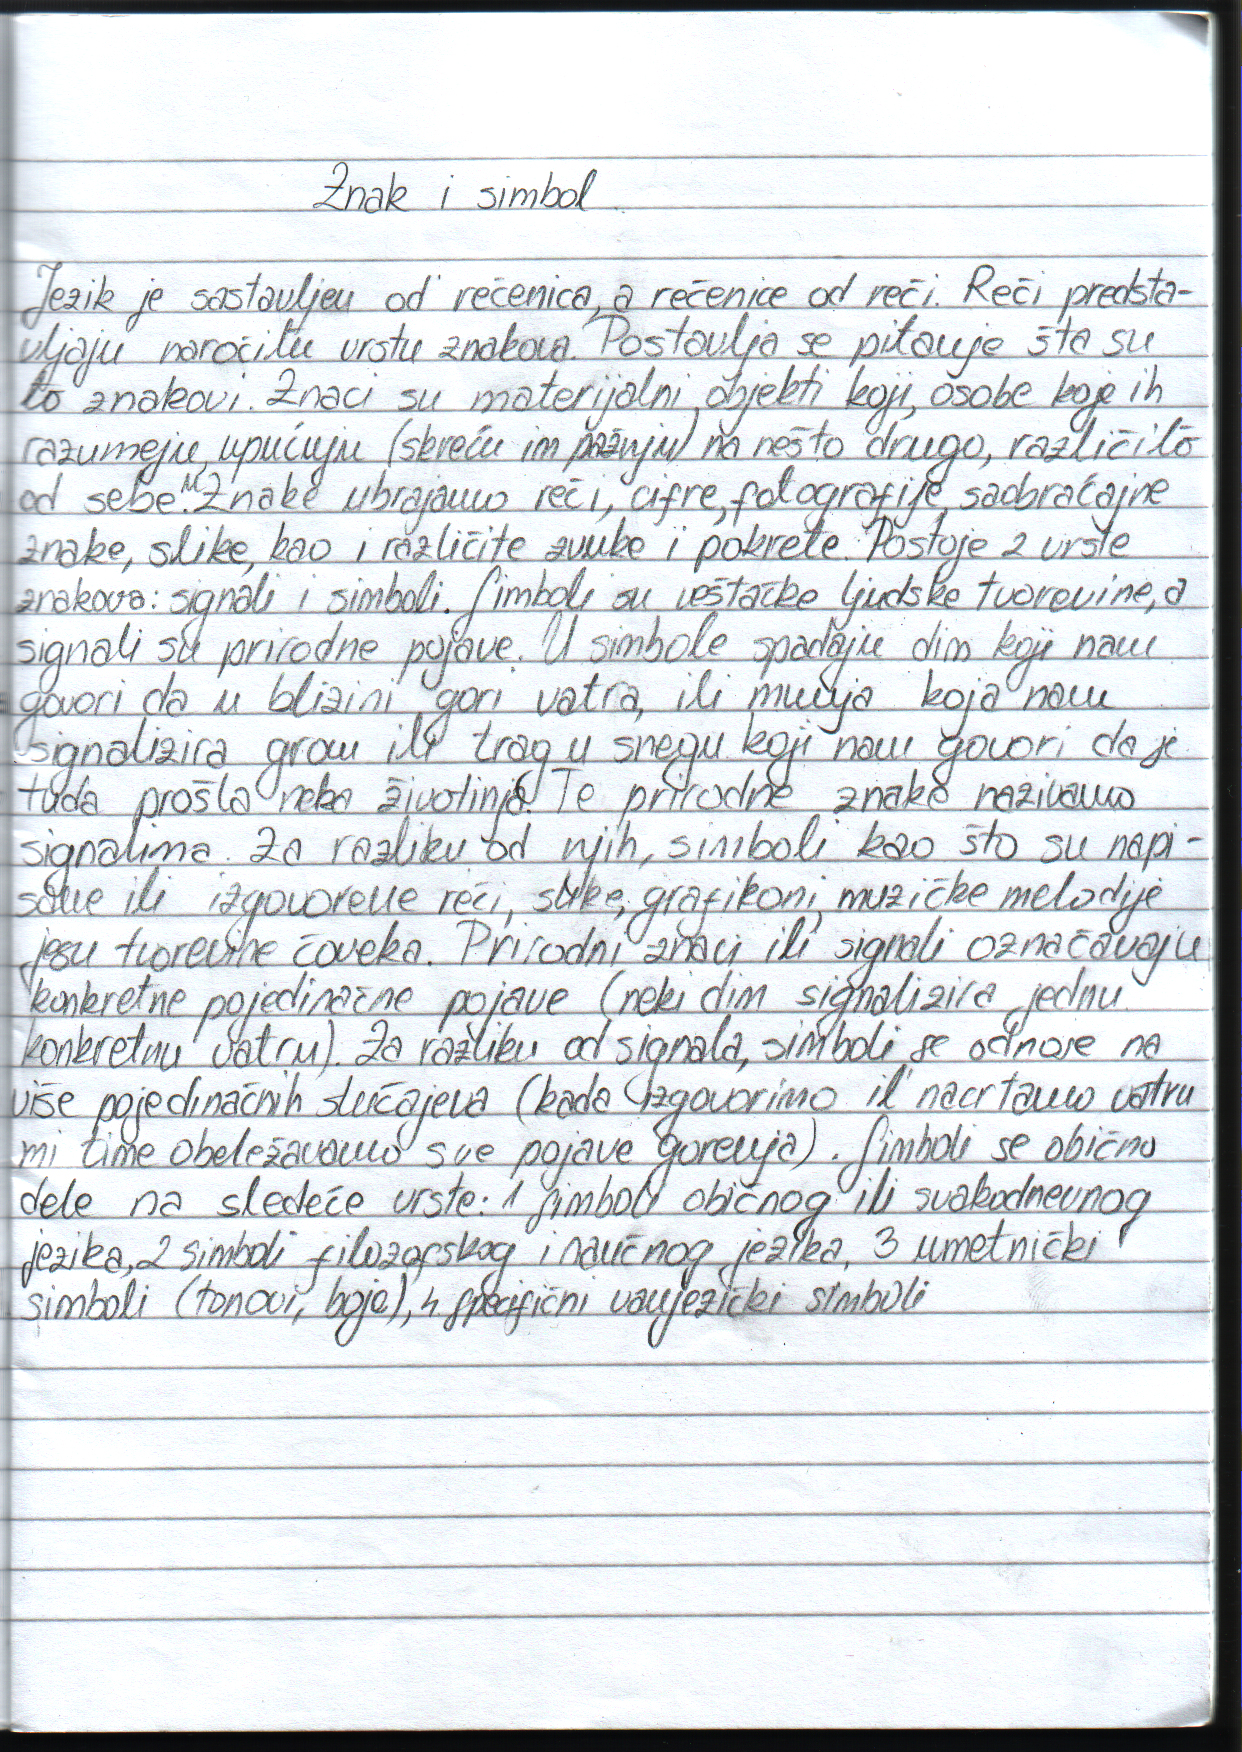 Znak i simbol
Jezik je sastavljen od rečenica, a rečenice od reči. Reči predsta-
vljaju naročitu vrstu znakova. Postavlja se pitanje šta su
to znakovi. Znaci su materijalni objekti koji, osobe koje ih
razumeju, upućuju (skreću im pažnju) na nešto drugo, različito
od sebe. U Znake ubrajamo reči, cifre, fotografije, saobraćajne
znake, slike, kao i različite zvuke i pokrete. Postoje 2 vrste
znakova: signali i simboli. Simboli su veštačke ljudske tvorevine, a
signali su prirodne pojave. U simbole spadaju dim koji nam
govori da u blizini gori vatra, ili munja koja nam
signalizira grom ili trag u snegu koji nam govori da je
tuda prošla neka životinja. Te prirodne znake nazivamo
signalima. Za razliku od njih, simboli kao što su napi-
sane ili izgovorene reči, slike, grafikoni, muzičke melodije
jesu tvorevine čoveka. Prirodni znaci ili signali označavaju
konkretne pojedinačne pojave (neki dim signalizira jednu
konkretnu vatru). Za razliku od signala, simboli se odnose na
više pojedinačnih slučajeva (kada izgovorimo il nacrtamo vatru
mi time obeležavamo sve pojave gorenja). Simboli se obično
dele na sledeće vrste: 1 simboli običnog ili svakodnevnog
jezika, 2 simboli filozofskog i naučnog jezika, 3 umetnički
simboli (tonovi, boje), 4 specifični vanjezički simboli